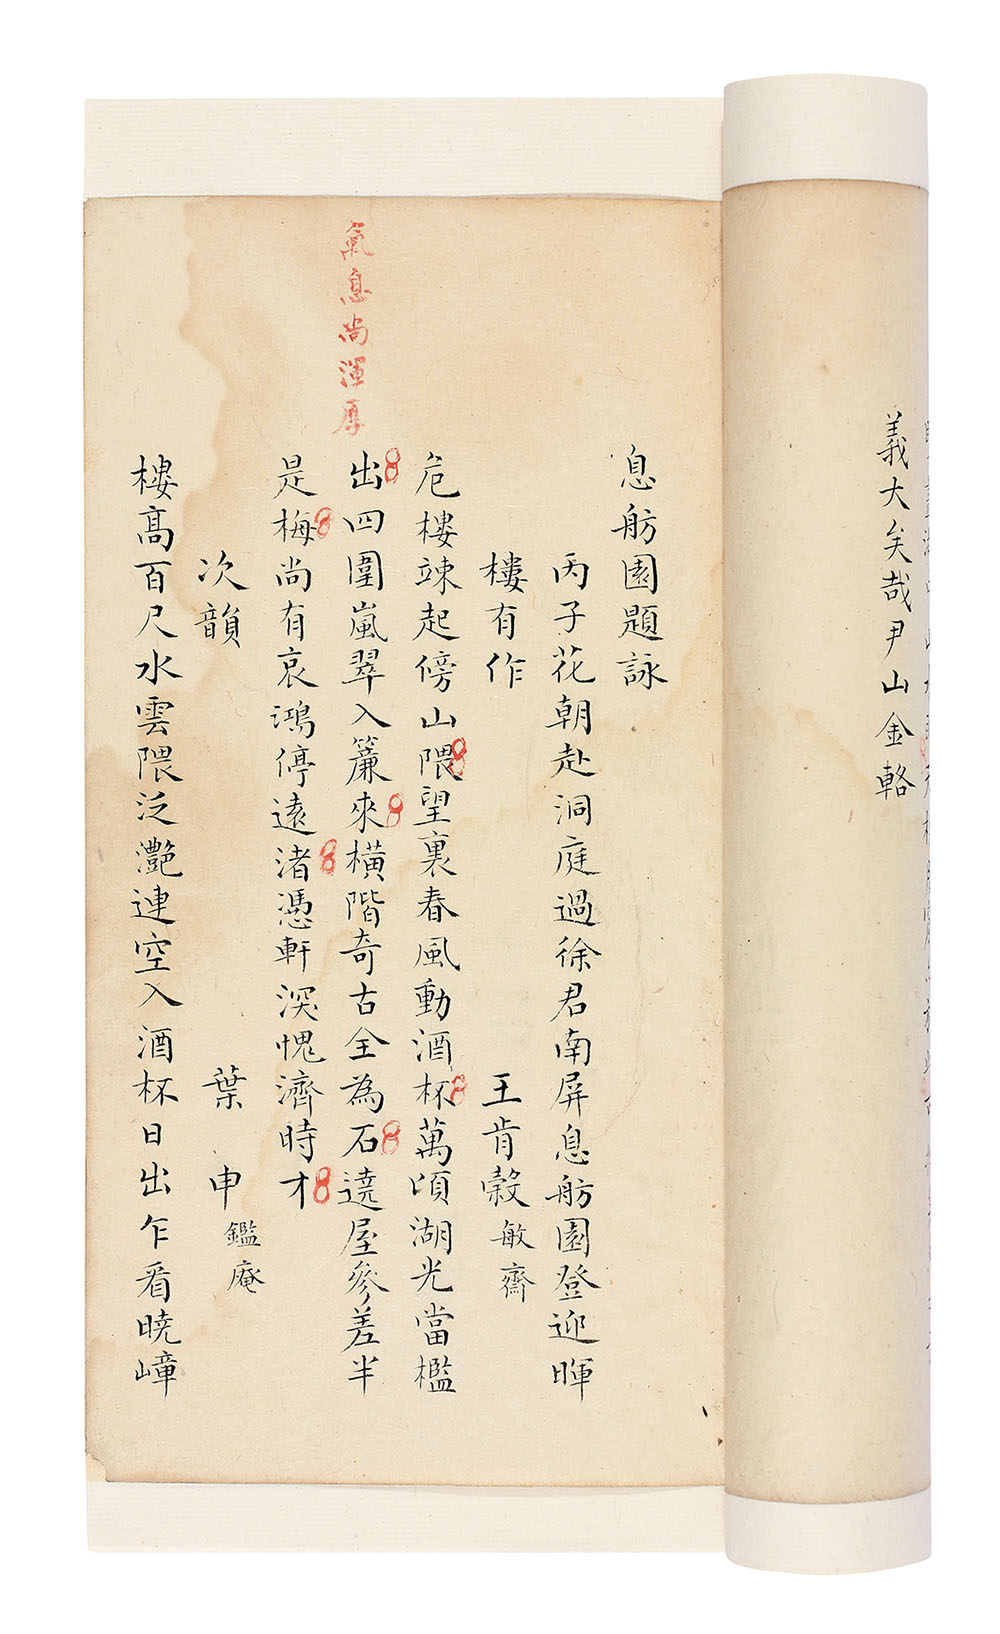 義大矣哉尹山金輅
息舫園題詠
丙子花朝赴洞庭過徐君南屏息舫園登迎暉
樓有作　王肯穀敏齋
危樓竦起傍山隈望裏春風動酒杯萬頃湖光當檻
出四圍嵐翠入簾來橫階奇古全為石遶屋參差半
是梅尚有哀鴻停遠渚憑軒深愧濟時才
氣息尚渾厚
次韻　葉申鑑庵
樓高百尺水雲隈泛灩連空入酒杯日出乍看曉嶂